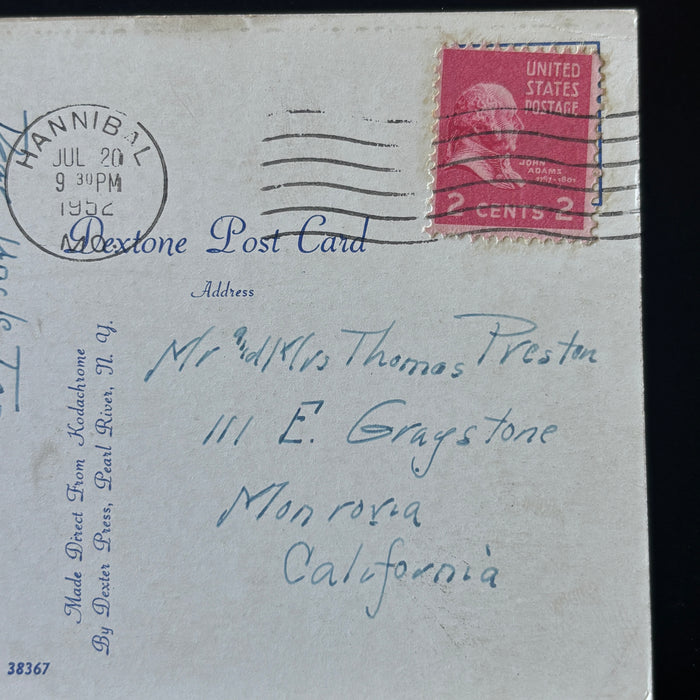 UNITED
STATES
POSTAGE
JOHN
ADAMS
1797-1801
2 CENTS 2
HANNIBAL
JUL 20
9 30 PM
1952
MO.
Dextone Post Card
Address
Mr and Mrs Thomas Preston
111 E. Graystone
Monrovia
California
Made Direct From Kodachrome
By Dexter Press, Pearl River, N. Y.
38367